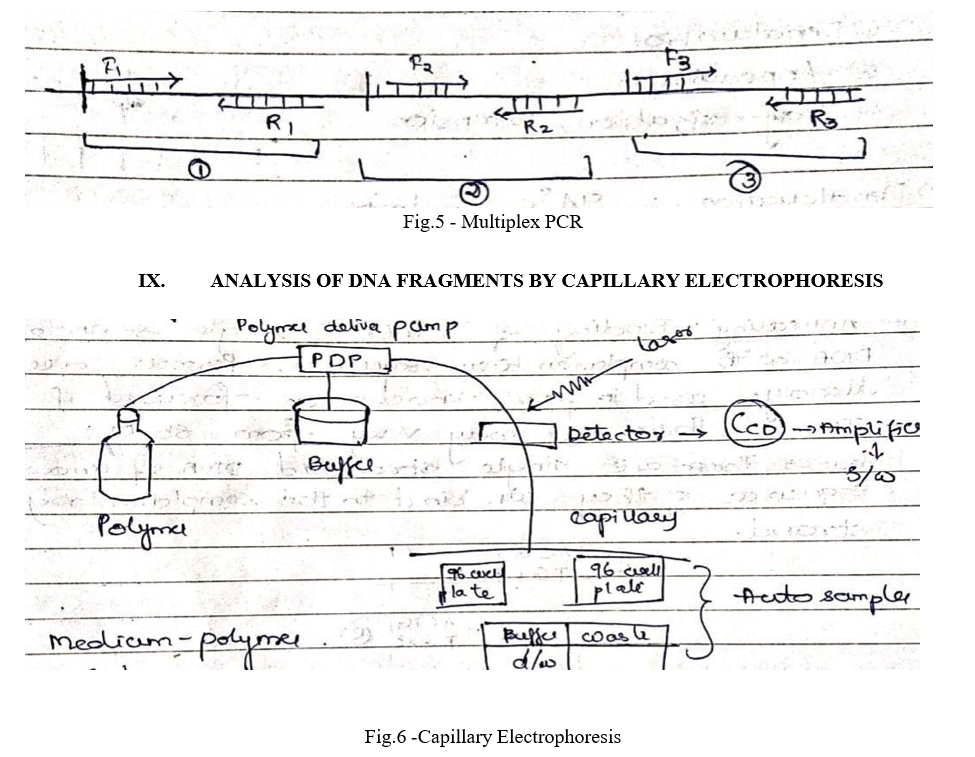 F1 F2 F3
R1 R2 R3
① ② ③
Fig.5 - Multiplex PCR
IX. ANALYSIS OF DNA FRAGMENTS BY CAPILLARY ELECTROPHORESIS
Polymer deliva pump
PDP
laser
Detector → CCD → Amplifier
S/W
Buffer
Polymer
capillary
96 well plate
96 well plate
Auto sampler
Medium - polymer.
Buffer waste
d/w
Fig.6 -Capillary Electrophoresis